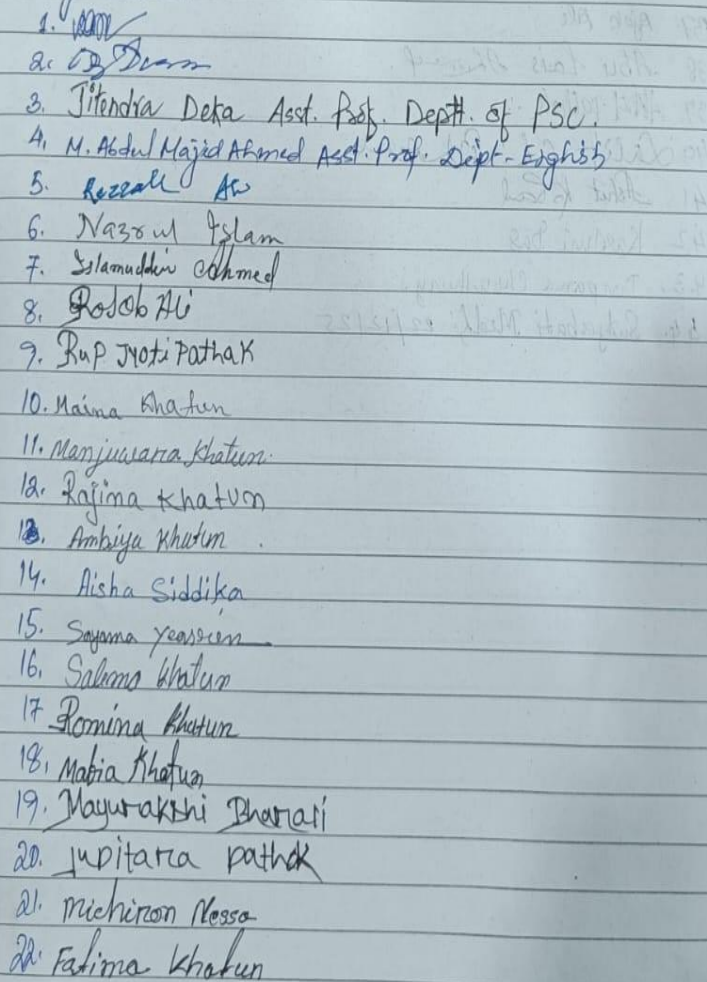 1.
2.
3. Jitendra Deka Asst. Prof. Deptt. of PSC.
4. M. Abdul Majid Ahmed Asst. Prof. Dept - English
5. Rezzak Ali
6. Nazrul Islam
7. Islamuddin Ahmed
8. Rosob Ali
9. Rup Jyoti Pathak
10. Maina Khatun
11. Manjuwara Khatun.
12. Rajima Khatun
13. Ambiya Khatun .
14. Aisha Siddika
15. Sayama Yeasmin
16. Salima Khatun
17 Romina Khatun
18. Mabia Khatun
19. Mayurakshi Bharali
20. Jupitara pathak
21. Michiron Nessa
22. Fatima Khatun